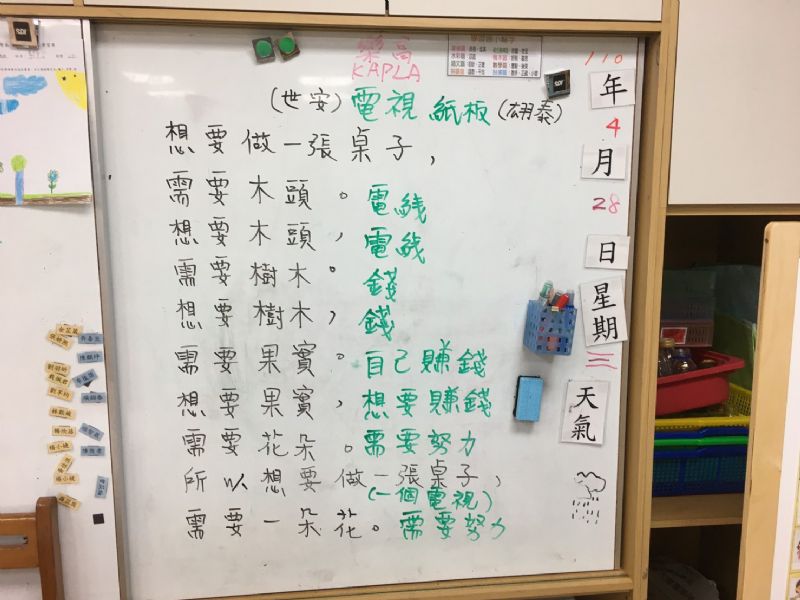 樂高
KAPLA
(世安) 電視 紙板 (翃泰)
想要做一張桌子，
需要木頭。電綫
想要木頭，電綫
需要樹木。錢
想要樹木，錢
需要果實。自己賺錢
想要果實，想要賺錢
需要花朵。需要努力
所以想要做一張桌子，
(一個電視)
需要一朵花。需要努力
110
年
4
月
28
日
星期
三
天氣
SDI